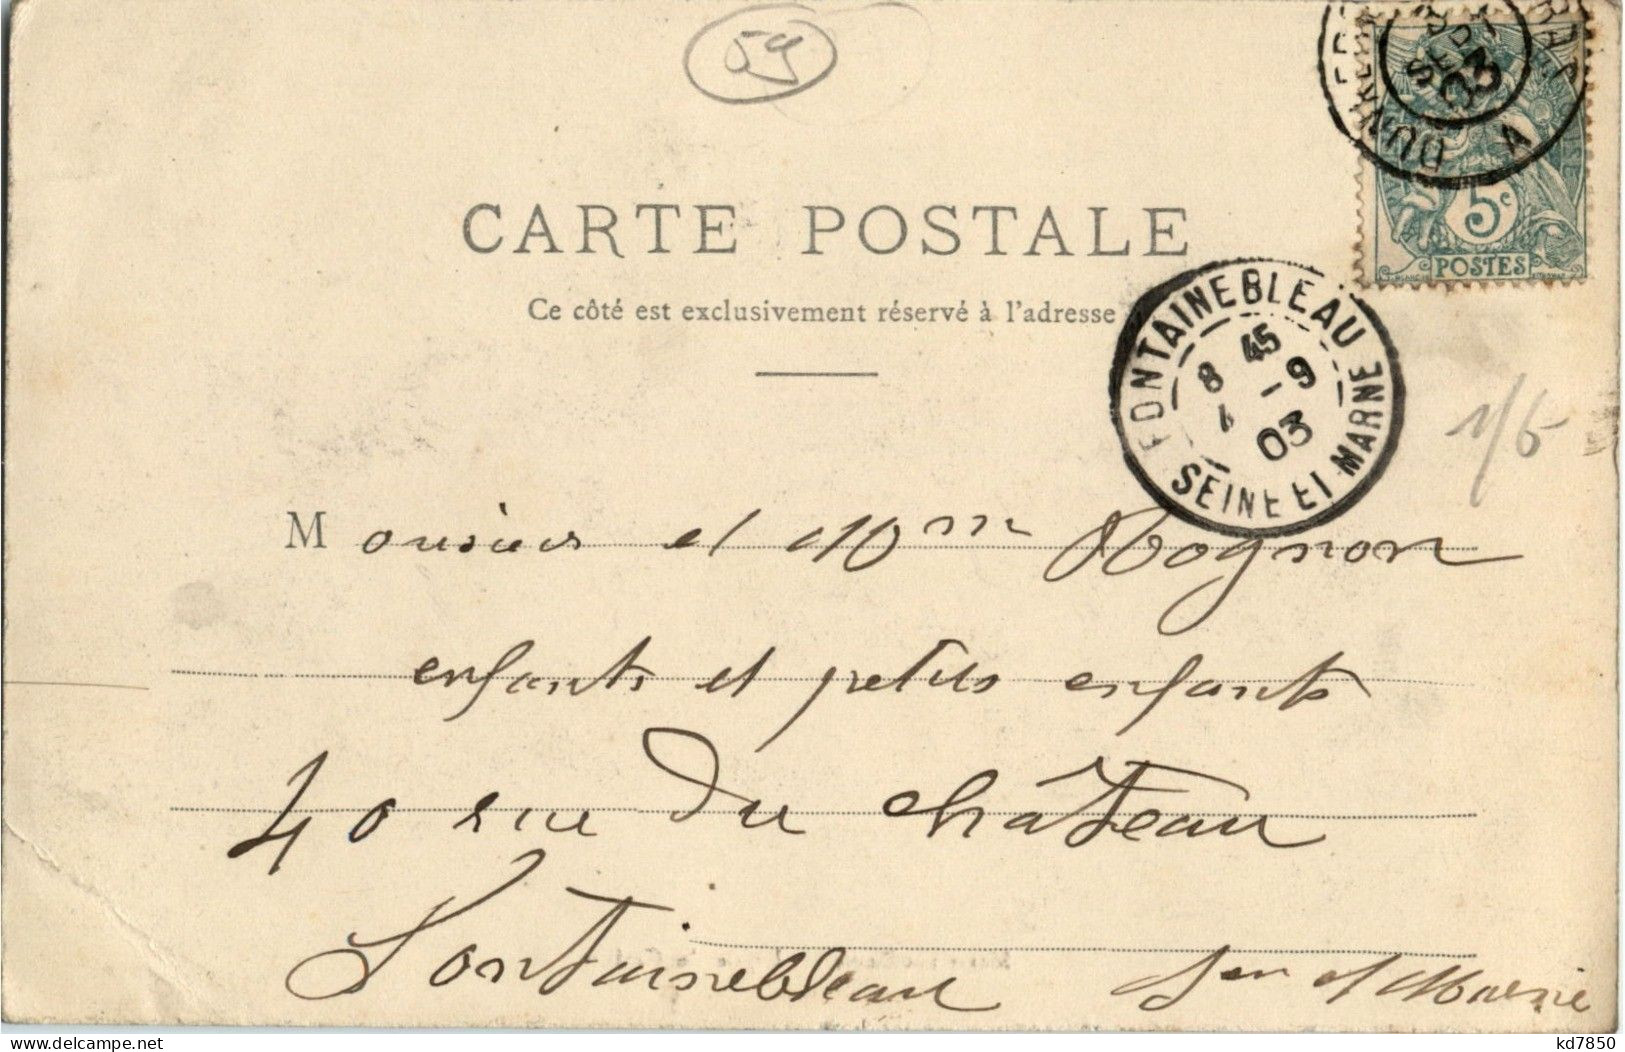 59
DUNKERQUE
3
SEPT
03
A
5c
POSTES
CARTE POSTALE
Ce côté est exclusivement réservé à l'adresse
FONTAINEBLEAU
8 45
4 -9
03
SEINE ET MARNE
1/6
Monsieur et Mme Rognon
enfants et petits enfants
40 rue du château
Fontainebleau Sen et Marne
delcampe.net
kd7850